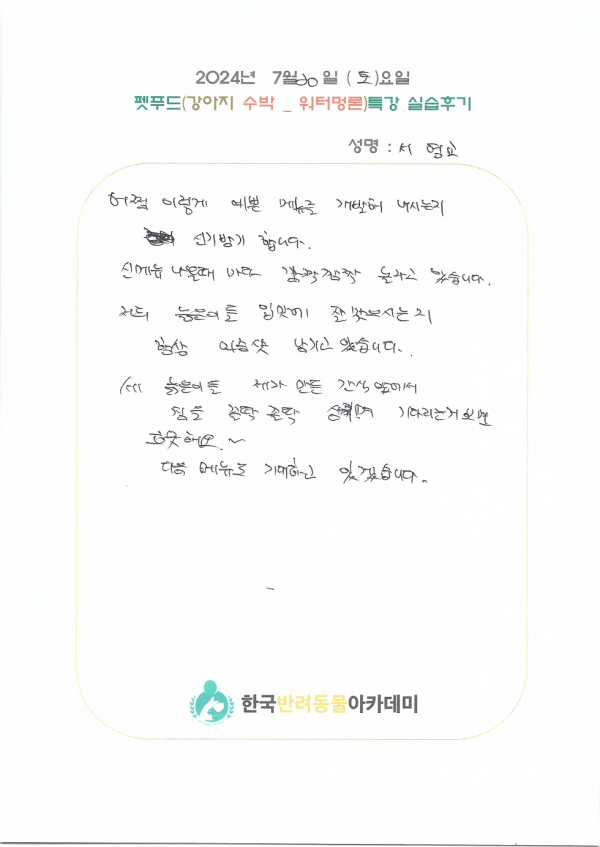 2024년 7월 20일 (토)요일
펫푸드(강아지 수박 _ 워터멍론)특강 실습후기
성명 : 서
어쩜 이렇게 예쁜 메뉴를 개발해 내시는지
신기방기 합니다.
신메뉴 나올때 마다 깜짝깜짝 놀라고 있습니다.
저희 늙은이들 입맛에 잘 맞으시는지
항상 남기고 있습니다.
늙은이들 제가 만든 간식 앞에서
침을 꼴딱 꼴딱 기다리는거 보면
흐뭇해요~
다음 메뉴도 기대하고 있겠습니다.
한국반려동물아카데미